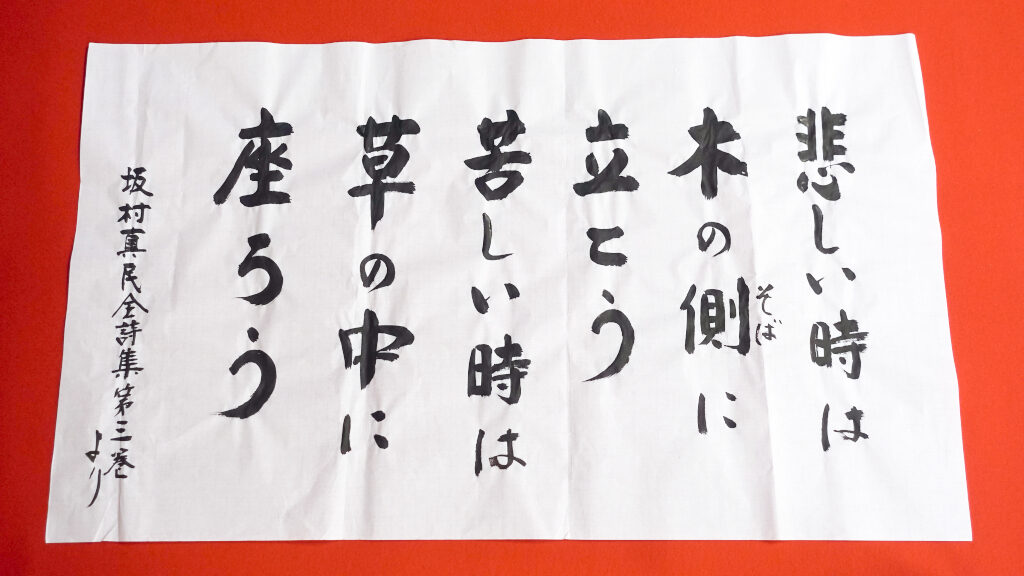 悲しい時は
木の側に
そば
立とう
苦しい時は
草の中に
座ろう
坂村真民全詩集第三巻
より